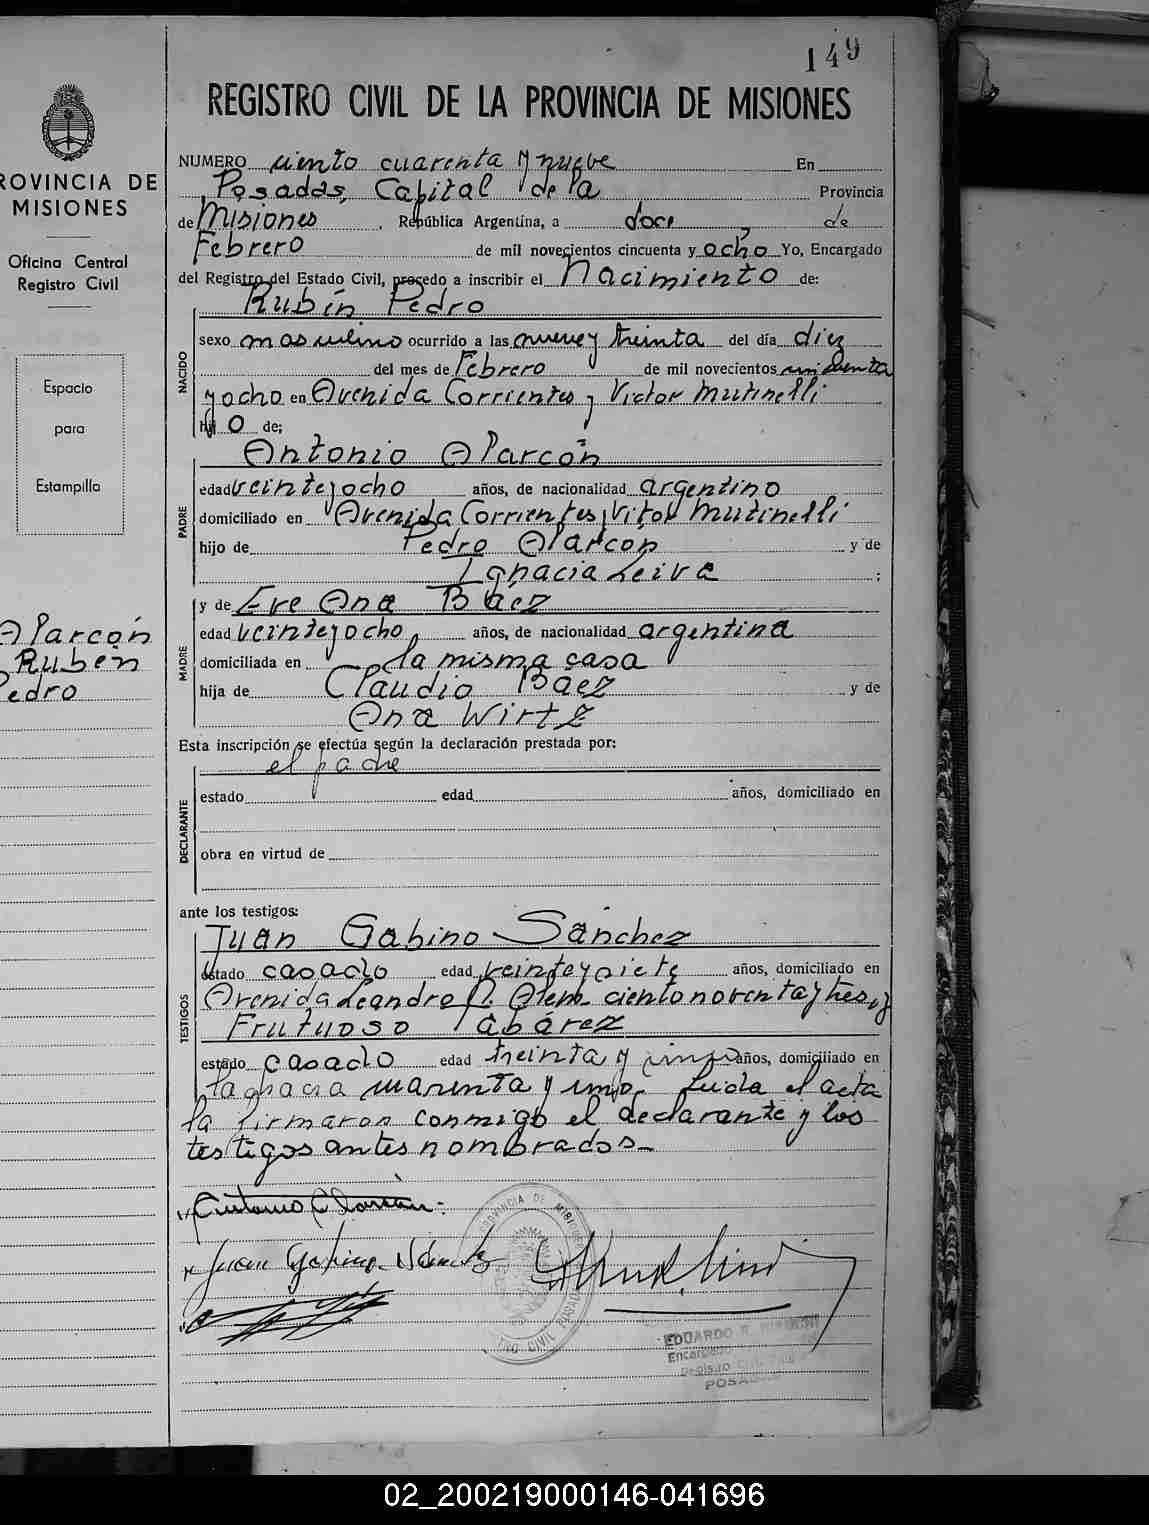 149
REGISTRO CIVIL DE LA PROVINCIA DE MISIONES
PROVINCIA DE
MISIONES
Oficina Central
Registro Civil
Espacio
para
Estampilla
Alarcón
Rubén
Pedro
NUMERO ciento cuarenta y nueve En
Posadas, Capital de la Provincia
de Misiones, República Argentina, a doce de
Febrero de mil novecientos cincuenta y ocho Yo, Encargado
del Registro del Estado Civil, procedo a inscribir el Nacimiento de:
Rubén Pedro
NACIDO
sexo masculino ocurrido a las nueve y treinta del día diez
del mes de Febrero de mil novecientos cincuenta
y ocho en Avenida Corrientes y Victor Mutinelli
hijo de;
Antonio Alarcón
PADRE
edad veinte y ocho años, de nacionalidad argentino
domiciliado en Avenida Corrientes y Vitor Mutinelli
hijo de Pedro Alarcón y de
Ignacia Leiva ;
y de Eve Ana Báez
MADRE
edad veinte y ocho años, de nacionalidad argentina
domiciliada en la misma casa
hija de Claudio Báez y de
Ana Wirtz
Esta inscripción se efectúa según la declaración prestada por:
el padre
DECLARANTE
estado edad años, domiciliado en
obra en virtud de
ante los testigos:
Juan Gabino Sánchez
TESTIGOS
estado casado edad veinte y siete años, domiciliado en
Avenida Leandro N. Alem ciento noventa y tres, y
Frutuoso Tabárez
estado casado edad treinta y cinco años, domiciliado en
la chacra cuarenta y uno. Leida el acta
la firmaron conmigo el declarante y los
testigos antes nombrados.-
Antonio Alarcón
Juan Gabino Sánchez
PROVINCIA DE MISIONES
CIVIL POSADAS
EDUARDO R.
Encargado
Registro
POSADAS
02_200219000146-041696